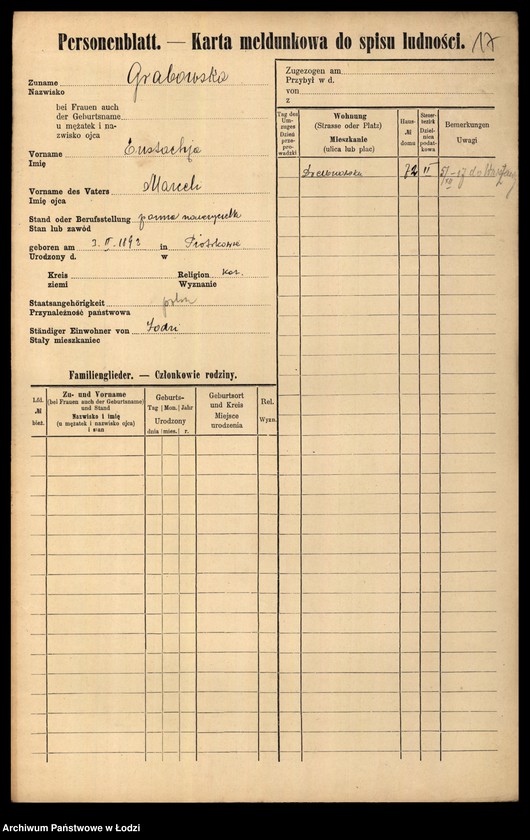 Personenblatt. — Karta meldunkowa do spisu ludności. 17
Zuname Grabowska
Nazwisko
bei Frauen auch
der Geburtsname
u mężatek i na-
zwisko ojca
Vorname Eustachja
Imię
Vorname des Vaters Marceli
Imię ojca
Stand oder Berufsstellung panna nauczycielk
Stan lub zawód
geboren am 3. II. 1892 in Piotrkowie
Urodzony d. w
Kreis Religion kat.
ziemi Wyznanie
Staatsangehörigkeit polsk
Przynależność państwowa
Ständiger Einwohner von Łodzi
Stały mieszkaniec
Familienglieder. — Członkowie rodziny.
Lfd. № bież.
Zu- und Vorname
(bei Frauen auch der Geburtsname)
und Stand
Nazwisko i imię
(u mężatek i nazwisko ojca)
i stan
Geburts-
Tag Mon. Jahr
Urodzony
dnia mies. r.
Geburtsort
und Kreis
Miejsce
urodzenia
Rel.
Wyzn.
Zugezogen am
Przybył w d.
von
z
Tag des
Um-
zuges
Dzień
prze-
pro-
wadzki
Wohnung
(Strasse oder Platz)
Mieszkanie
(ulica lub plac)
Haus-
№
domu
Steuer-
bezirk
Dziel-
nica
podat-
kowa
Bemerkungen
Uwagi
72 II 17 do Warszawy
Archiwum Państwowe w Łodzi